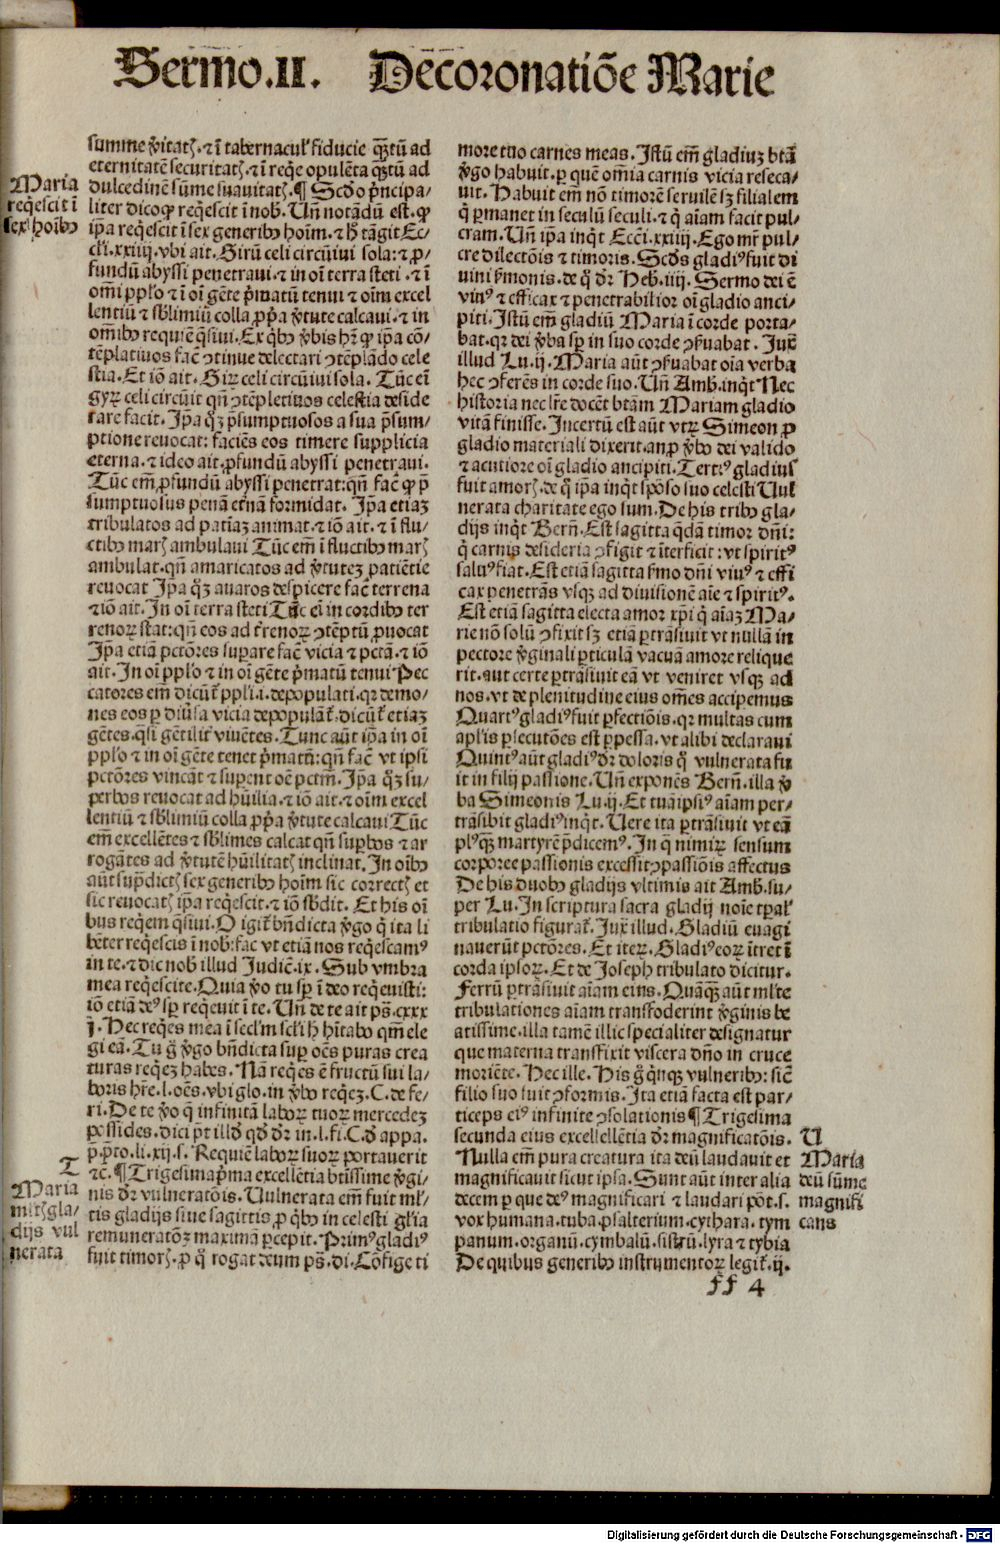 Sermo.II. De coronatiōe Marie
summe v̾itatꝭ.⁊ ī tabernacul' fiducie qȝtū ad
eternitatē securitatꝭ.⁊ ī req̇e opulēta qȝtū ad
dulcedinē sūme suauitatꝭ.¶ Scḋo p̄ncipa/
liter dico qꝙ req̇escit ī nob̄. Uñ notādū est.ꝙ
ip̄a req̇escit ī sex generibꝰ hoīm.⁊ h̄ tāgit Ec/
cli.xxiiij.vbi ait. Girū celi circūiui sola:⁊ ꝓ/
fundū abyssi penetraui.⁊ in oī terra steti.⁊ ī
om̄i ppl'o ⁊ ī oī gēte p̄matū tenui ⁊ oīm excel
lentiū ⁊ sb̄limiū colla ꝓp̄a v̾tute calcaui.⁊ in
om̄ibꝰ requiē q̄siui. Ex q̇bꝰ v̾bis hr̄ ꝙ ip̄a cō/
tēplatiuos fac̄ ꝯtinue delectari ꝯtēplādo cele
stia. Et iō ait. Girꝝ celi circūiui sola. Tūc eī
gyꝝ celi circūit qn̄ ꝯtēpletiuos celestia deside
rare facit. Ip̄a q̇ȝ p̄sumptuosos a sua p̄sum/
ptione reuocat: faciēs eos timere supplicia
eterna.⁊ ideo ait.ꝓfundū abyssi penetraui.
Tūc em̄ ꝓfundū abyssi penetrat:qn̄ fac̄ ꝙ p̄
sumptuosus penā et̄nā formidat. Ip̄a etiaȝ
tribulatos ad patīaȝ animat.⁊ iō ait.⁊ ī flu/
ctibꝰ marꝭ ambulaui Tūc em̄ ī fluctibꝰ marꝭ
ambulat.qn̄ amaricatos ad v̾tuteȝ patiētie
reuocat Ip̄a q̇ȝ auaros despicere fac̄ terrena
⁊ iō ait. In oī terra steti Tūc eī in cordibꝰ ter
renoꝝ stat:qn̄ eos ad t̄renoꝝ ꝯtēptū ꝓuocat
Ip̄a etiā pctōres supare fac̄ vicia ⁊ pctā.⁊ iō
ait. In oī ppl'o ⁊ in oī gēte p̄matū tenui Pec
catores em̄ dicūt̄ ppl'i.i.depopulati.qꝛ demo/
nes eos ꝑ diu̾sa vicia depopulāt̄.dicūt̄ etiaȝ
gētes.q̄si gētilit̄ viuētes. Tunc aūt ip̄a in oī
ppl'o ⁊ in oī gēte tenet p̄matū:qn̄ fac̄ vt ipsi
pctōres vincāt ⁊ suꝑent oē pctm̄. Ip̄a q̇ȝ su/
perbos reuocat ad hūilia.⁊ iō ait.⁊ oīm excel
lentiū ⁊ sb̄limiū colla ꝓp̄a v̾tute calcaui Tūc
em̄ excellētes ⁊ sb̄limes calcat qn̄ suꝑbos ⁊ ar
rogātes ad v̾tutē hūilitatꝭ inclinat. In oībꝰ
aūt sup̄dictꝭ sex generibꝰ hoīm sic correctꝭ et
sic reuocatꝭ ip̄a req̇escit.⁊ iō sb̄dit. Et his oī
bus req̇em q̄siui. O igit̄ bn̄dicta v̾go q̇ ita li
bēter req̇escis ī nob̄:fac vt etiā nos req̇escamꝰ
in te.⁊ dic nob̄ illud Judic̄.ix. Sub vmbra
mea req̇escite. Quia v̾o tu sꝑ ī deo req̇euisti:
iō etiā deꝰ sꝑ req̇euit ī te. Uñ de te ait ps̄.cxxx
j. Hec req̇es mea ī secl'm scl'i h̄ hītabo qm̄ ele
gi eā. Tu g̊ v̾go bn̄dicta suꝑ oēs puras crea
turas req̇eȝ habes. Nā req̇es ē fructū sui la/
boris hr̄e.l.oēs.vbi glo.in v̾bo req̇eȝ.C.de fe/
ri. De te v̾o q̇ infinitā laboꝝ tuoꝝ mercedeȝ
possides.dici pt̄ illḋ qḋ dr̄ in.l.fi.C.ḋ appa.
p̄.pt̄o.li.xij.s. Requiē laboꝝ suoꝝ portauerit
⁊c̄.¶Trigesimap̄ma excellētia btīssime v̾gi/
nis dr̄ vulneratōis. Uulnerata em̄ fuit ml'/
tis gladijs siue sagittis ꝓ q̇bꝰ in celesti gl'ia
remuneratōȝ maximā ꝑcepit. Primꝰ gladiꝰ
fuit timorꝭ.ꝓ q̊ rogat deum ps̄.di. Cōfige ti
Maria
req̇escit ī
sex hoībꝰ
T
Maria
ml'tꝭ gla/
dijs vul
nerata
more tuo carnes meas. Istū em̄ gladiuȝ btā
v̾go habuit.ꝑ quē om̄ia carnis vicia reseca/
uit. Habuit em̄ nō timorē seruilē sȝ filialem
q̇ ꝑmanet in seculū seculi.⁊ q̇ aīam facit pul/
cram. Uñ ip̄a inq̇t Ecc̄i.xxiiij. Ego mr̄ pul/
cre dilectōis ⁊ timoris. Scḋs gladiꝰ fuit di
uini s̾monis.de q̊ dr̄ Heb̄.iiij. Sermo dei ē
viuꝰ ⁊ efficax ⁊ penetrabilior oī gladio anci/
piti. Istū em̄ gladiū Maria ī corde porta/
bat.qꝛ dei v̾ba sꝑ in suo corde ꝯs̾uabat. Iux̄
illud Lu.ij. Maria aūt ꝯs̾uabat oīa verba
hec ꝯferēs in corde suo. Uñ Amb̄.inq̇t Nec
historia nec lr̄e docēt btām Mariam gladio
vitā finisse. Incertū est aūt vtꝝ Simeon ꝓ
gladio materiali dixerit.an ꝓ v̾bo dei valido
⁊ acutiore oī gladio ancipiti. Tertiꝰ gladius
fuit amorꝭ.de q̊ ip̄a inq̇t spōso suo celesti Uul
nerata charitate ego sum. De his tribꝰ gla/
dijs inq̇t Bern̄. Est sagitta q̄dā timor dn̄i:
q̇ carnis desideria ꝯfigit ⁊ īterficit:vt spiritꝰ
saluꝰ fiat. Est etiā sagitta s̾mo dn̄i viuꝰ ⁊ effi
cax penetrās vsqȝ ad diuisionē aīe ⁊ spiritꝰ.
Est etiā sagitta electa amor xp̄i q̇ aīaȝ Ma/
rie nō solū ꝯfixit sȝ etiā ꝑtrāsiuit vt nullā in
pectore v̾ginali ꝑticulā vacuā amore relique
rit.aut certe ꝑtrāsiuit eā vt veniret vsqȝ ad
nos.vt de plenitudine eius om̄es accipemus
Quartꝰ gladiꝰ fuit ꝑfectiōis.qꝛ multas cum
apl'is ꝑsecutōes est ꝑpessa.vt alibi declaraui
Quintꝰ aūt gladiꝰ dr̄ doloris q̊ vulnerata fu
it in filij passione. Uñ exponēs Bern̄.illa v̾
ba Simeonis Lu.ij. Et tuā ipsiꝰ aīam per/
trāsibit gladiꝰ inq̇t. Uere ita ꝑtrāsiuit vt eā
plꝰqȝ martyrē p̄dicemꝰ. In q̊ nimiꝝ sensum
corporee passionis excessit ꝯpassiōis affectus
De his duobꝰ gladijs vltimis ait Amb̄.su/
per Lu. In scriptura sacra gladij noīe tꝑal'
tribulatio figurat̄. Jux̄ illud. Gladiū euagi
nauerūt pctōres. Et iteꝝ. Gladiꝰ eoꝝ ītret ī
corda ipsoꝝ. Et de Joseph tribulato dicitur.
Ferrū ꝑtrāsiuit aīam eius. Quāqȝ aūt ml'te
tribulationes aīam transfoderint v̾ginis be
atissime.illa tamē illic specialiter designatur
que materna transfixit viscera dn̄o in cruce
moriēte. Hec ille. His g̊ q̇nqȝ vulneribꝰ: sic̄
filio suo fuit ꝯformis. Ita etiā facta est par/
ticeps eiꝰ infinite ꝯsolationis ¶Trigesima
secunda eius excellellētia dr̄ magnificatōis.
Nulla em̄ pura creatura ita deū laudauit et
magnificauit sicut ipsa. Sunt aūt inter alia
decem ꝑ que deꝰ magnificari ⁊ laudari pōt.s.
vox humana.tuba.psalterium.cythara.tym
panum.organū.cymbalū.sistrū.lyra ⁊ tybia
De quibus generibꝰ instrumentoꝝ legit̄.ij.
U
Maria
deū sūme
magnifi
cans
ff 4
Digitalisierung gefördert durch die Deutsche Forschungsgemeinschaft - DFG